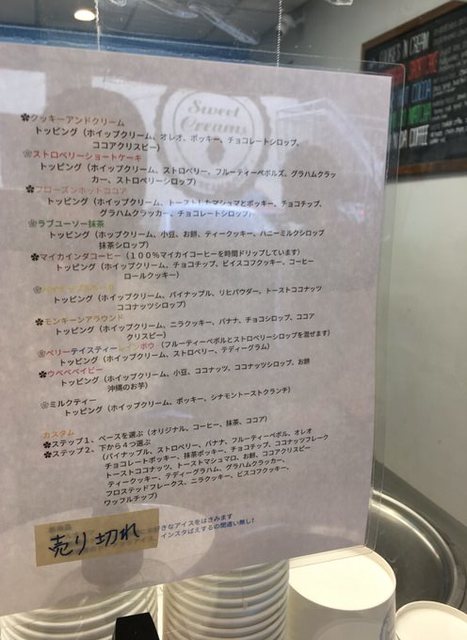 Sweet
Creams
✿クッキーアンドクリーム
トッピング（ホイップクリーム、オレオ、ポッキー、チョコレートシロップ、
ココアクリスピー）
❀ストロベリーショートケーキ
トッピング（ホイップクリーム、ストロベリー、フルーティーペボルズ、グラハムクラッ
カー、ストロベリーシロップ）
✿フローズンホットココア
トッピング（ホイップクリーム、トーストしたマシュマとポッキー、チョコチップ、
グラハムクラッカー、チョコレートシロップ）
❀ラブユーソー抹茶
トッピング（ホップクリーム、小豆、お餅、ティークッキー、ハニーミルクシロップ
抹茶シロップ）
✿マイカインダコーヒー（１００％マイカイコーヒーを時間ドリップしています）
トッピング（ホイップクリーム、チョコチップ、ビイスコフクッキー、コーヒー
ロールクッキー）
トッピング（ホイップクリーム、パイナップル、リヒパウダー、トーストココナッツ
ココナッツシロップ）
✿モンキーンアラウンド
トッピング（ホイップクリーム、ニラクッキー、バナナ、チョコシロップ、ココア
クリスピー）
❀ベリーテイスティー ボウ（フルーティーペボルとストロベリーシロップを混ぜます）
トッピング（ホイップクリーム、ストロベリー、テディーグラム）
✿ウベベベイビー
トッピング（ホイップクリーム、小豆、ココナッツ、ココナッツシロップ、お餅
沖縄のお芋）
❀ミルクティー
トッピング（ホイップクリーム、ポッキー、シナモントーストクランチ）
カスタム
✿ステップ１、ベースを選ぶ（オリジナル、コーヒー、抹茶、ココア）
✿ステップ２、下から４つ選ぶ
（パイナップル、ストロベリー、バナナ、フルーティーペボル、オレオ
チョコレートポッキー、抹茶ポッキー、チョコチップ、ココナッツフレーク
トーストココナッツ、トーストマシュマロ、お餅、ココアクリスピー
ティークッキー、テディーグラハム、グラハムクラッカー、
フロステッドフレークス、ニラクッキー、ビスコフクッキー、
ワッフルチップ）
きなアイスをはさみます
インスタばえするの間違い無し！
売り切れ